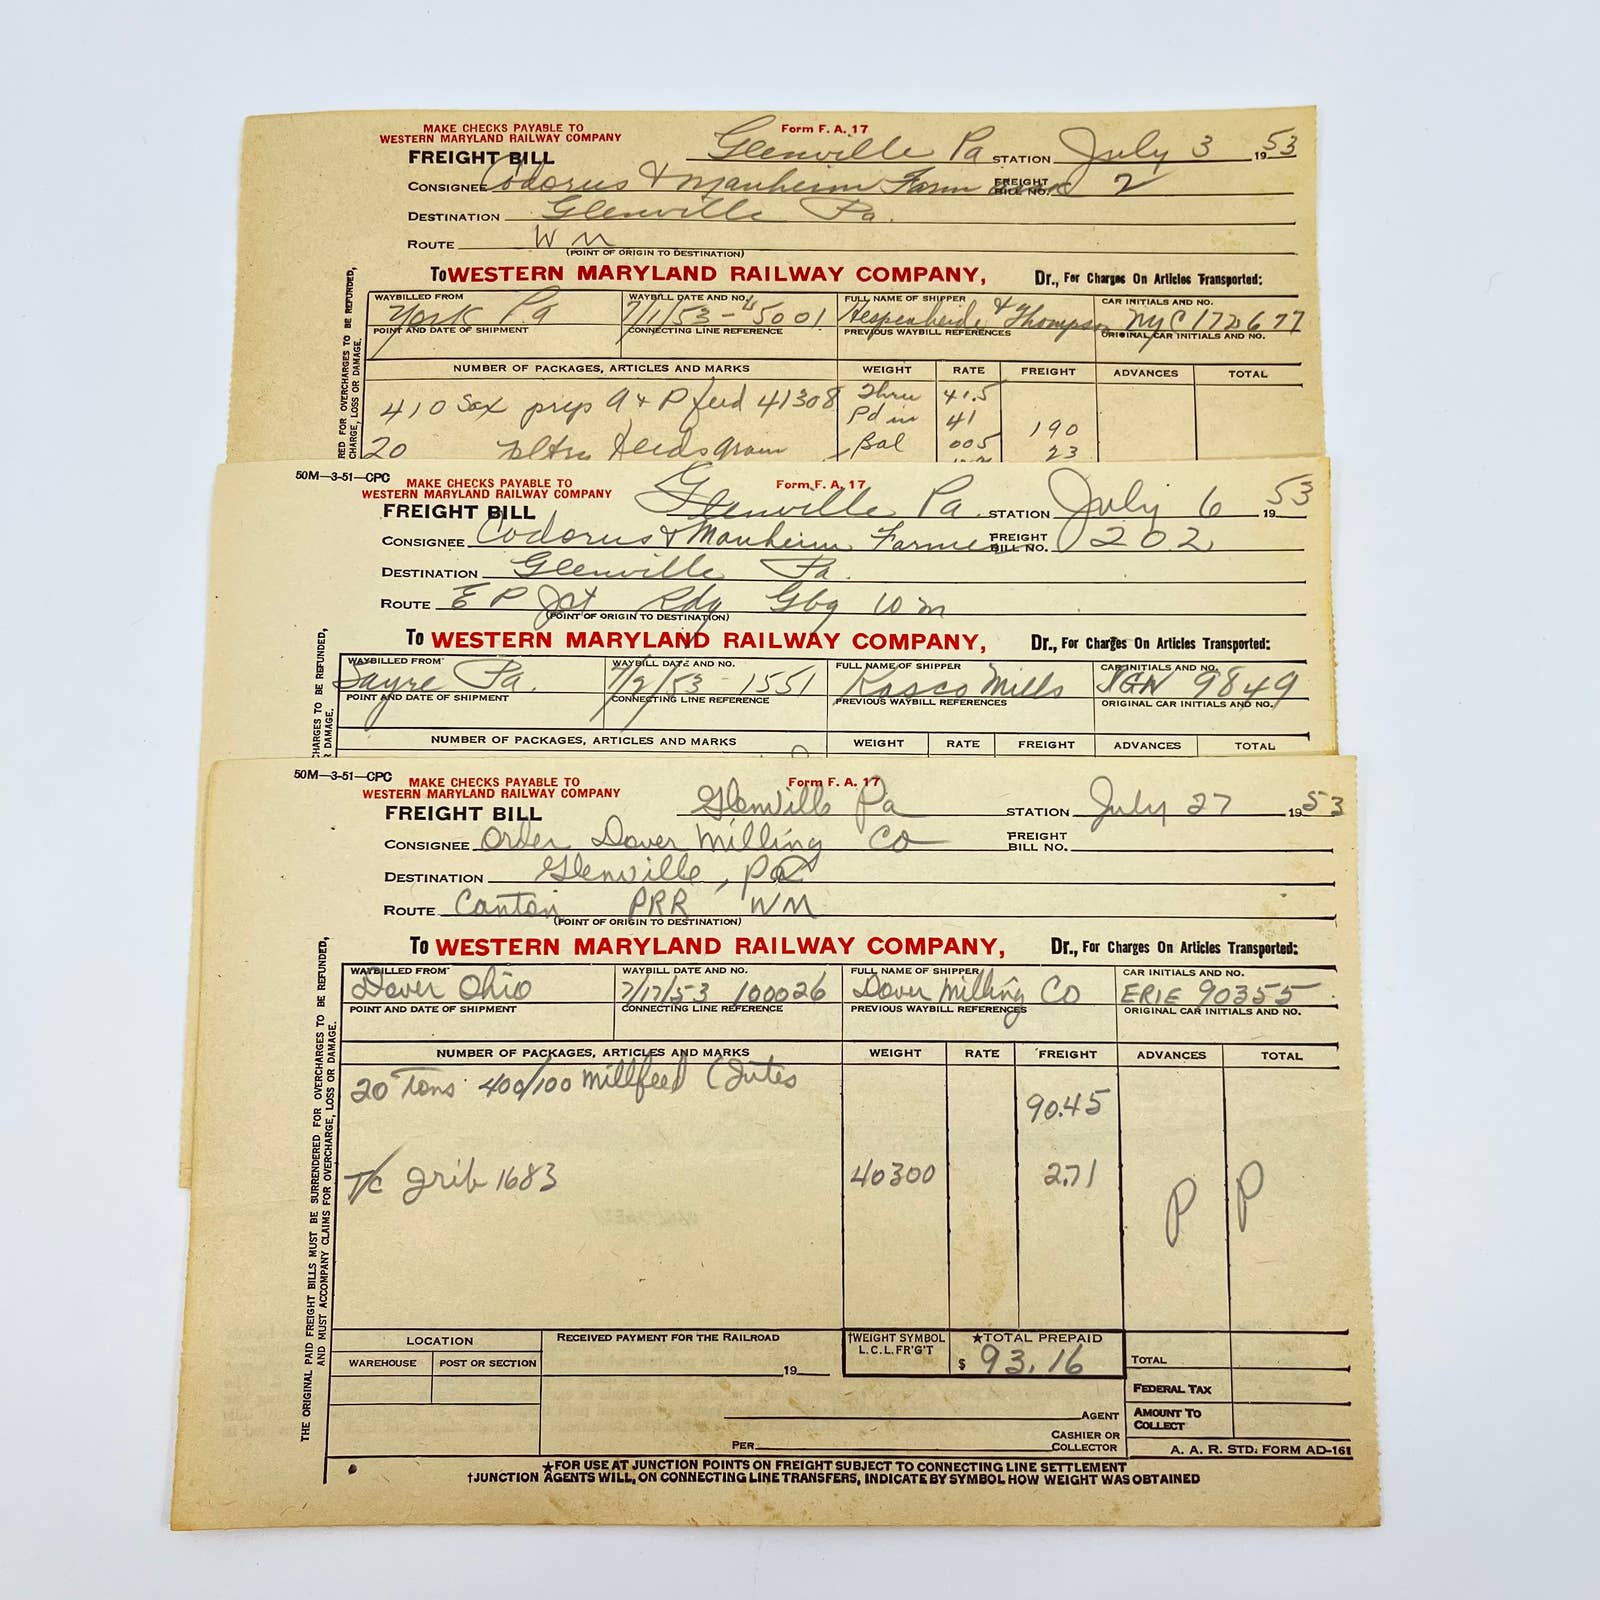 MAKE CHECKS PAYABLE TO
WESTERN MARYLAND RAILWAY COMPANY
Form F. A. 17
FREIGHT BILL Glenville Pa STATION July 3 1953
CONSIGNEE Codorus & Manheim Farm FREIGHT BILL NO. 2
DESTINATION Glenville Pa.
ROUTE W M
(POINT OF ORIGIN TO DESTINATION)
To WESTERN MARYLAND RAILWAY COMPANY, Dr., For Charges On Articles Transported:
WAYBILLED FROM WAYBILL DATE AND NO. FULL NAME OF SHIPPER CAR INITIALS AND NO.
York Pa 7/1/53 - 5001 Hespenheide & Thompson NYC 172677
POINT AND DATE OF SHIPMENT CONNECTING LINE REFERENCE PREVIOUS WAYBILL REFERENCES ORIGINAL CAR INITIALS AND NO.
NUMBER OF PACKAGES, ARTICLES AND MARKS WEIGHT RATE FREIGHT ADVANCES TOTAL
410 Sax prep A & P feed 41308 Thru 41.5
Pd in 41 190
20 Bal 005 23
RED FOR OVERCHARGES TO BE REFUNDED,
CHARGE, LOSS OR DAMAGE.
50M—3-51—CPC
MAKE CHECKS PAYABLE TO
WESTERN MARYLAND RAILWAY COMPANY
Form F. A. 17
FREIGHT BILL Glenville Pa. STATION July 6 1953
CONSIGNEE Codorus & Manheim Farmers FREIGHT BILL NO. 202
DESTINATION Glenville Pa.
ROUTE E P Jct Rdg Gbg W M
(POINT OF ORIGIN TO DESTINATION)
To WESTERN MARYLAND RAILWAY COMPANY, Dr., For Charges On Articles Transported:
WAYBILLED FROM WAYBILL DATE AND NO. FULL NAME OF SHIPPER CAR INITIALS AND NO.
Sayre Pa. 7/2/53 - 1551 Kasco Mills 9849
POINT AND DATE OF SHIPMENT CONNECTING LINE REFERENCE PREVIOUS WAYBILL REFERENCES ORIGINAL CAR INITIALS AND NO.
NUMBER OF PACKAGES, ARTICLES AND MARKS WEIGHT RATE FREIGHT ADVANCES TOTAL
CHARGES TO BE REFUNDED,
R DAMAGE.
50M—3-51—CPC
MAKE CHECKS PAYABLE TO
WESTERN MARYLAND RAILWAY COMPANY
Form F. A. 17
FREIGHT BILL Glenville Pa STATION July 27 1953
CONSIGNEE Order Dover Milling Co FREIGHT BILL NO.
DESTINATION Glenville, Pa
ROUTE Canton PRR WM
(POINT OF ORIGIN TO DESTINATION)
To WESTERN MARYLAND RAILWAY COMPANY, Dr., For Charges On Articles Transported:
WAYBILLED FROM WAYBILL DATE AND NO. FULL NAME OF SHIPPER CAR INITIALS AND NO.
Dover Ohio 7/17/53 100026 Dover Milling Co ERIE 90355
POINT AND DATE OF SHIPMENT CONNECTING LINE REFERENCE PREVIOUS WAYBILL REFERENCES ORIGINAL CAR INITIALS AND NO.
NUMBER OF PACKAGES, ARTICLES AND MARKS WEIGHT RATE FREIGHT ADVANCES TOTAL
20 Tons 400/100 Millfeed (Jutes
90.45
T/C 1683 40300 2.71 P P
THE ORIGINAL PAID FREIGHT BILLS MUST BE SURRENDERED FOR OVERCHARGES TO BE REFUNDED,
AND MUST ACCOMPANY CLAIMS FOR OVERCHARGE, LOSS OR DAMAGE.
LOCATION RECEIVED PAYMENT FOR THE RAILROAD †WEIGHT SYMBOL ★TOTAL PREPAID
L.C.L. FR'G'T $ 93.16 TOTAL
WAREHOUSE POST OR SECTION 19
FEDERAL TAX
AGENT AMOUNT TO COLLECT
PER CASHIER OR COLLECTOR A. A. R. STD. FORM AD-161
★FOR USE AT JUNCTION POINTS ON FREIGHT SUBJECT TO CONNECTING LINE SETTLEMENT
†JUNCTION AGENTS WILL, ON CONNECTING LINE TRANSFERS, INDICATE BY SYMBOL HOW WEIGHT WAS OBTAINED